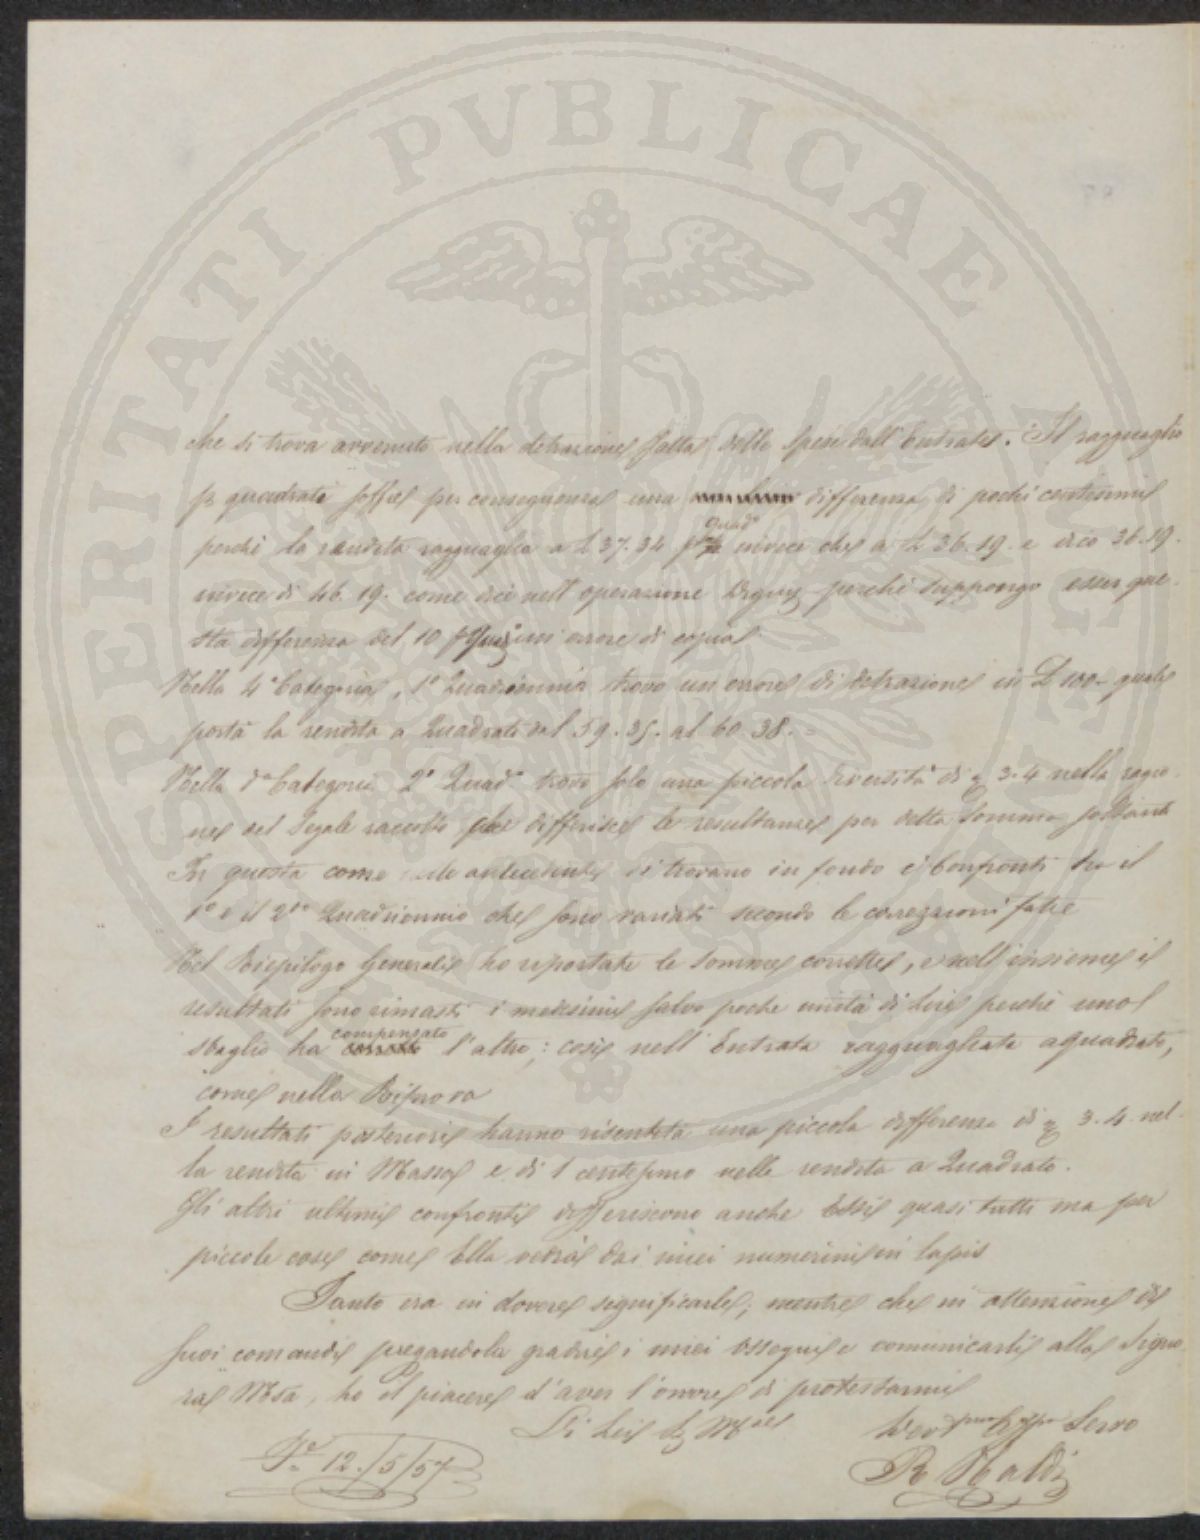 PROSPERITATI PUBLICAE AUGENDAE
che si trova avvenuto nella detrazione fatta delle Spese dall'Entrate. Il ragguaglio
quadrato soffre per conseguenza una differenza di pochi centesimi
perchè la rendita ragguaglia a L 37.34 p Quad° invece che a L 36.19. e dico 36.19.
invece di 46.19. come dice nell'operazione perchè suppongo esser que-
sta differenza del 10 un errore di copia
Nella 4ª Categoria, 1° Quadriennio trovo un errore di detrazione in L 100 quale
porta la rendita a Quadrato dal 59.35. al 60.38.
Nella Categoria 2° Quad° trovo solo una piccola diversità di 3.4 nella ragio-
ne del Segale raccolto che differisce le resultanze per detta Somma soltanto
In questa come nelle antecedenti si trovano in fondo i Confronti tra il
1° e il 2do Quadriennio che sono variati secondo le correzioni fatte
Nel Riepilogo Generale ho riportate le Somme corrette, e nell'insieme i
resultati sono rimasti i medesimi salvo poche unità di Lire perchè uno
sbaglio ha compensato l'altro; così nell'Entrata ragguagliata a quadrato,
come nella Riprova
I resultati posteriori hanno risentita una piccola differenza di 3.4. nel-
la rendita in Massa e di 1 centesimo nella rendita a Quadrato.
Gli altri ultimi confronti differiscono anche Essi quasi tutti ma per
piccole cose come Ella vedrà dai miei numerini in lapis
Tanto era in dovere significarle; mentre che in attenzione di
suoi comandi pregandola gradire i miei ossequi e comunicarli alla Signo-
ra Msa, ho il piacere d'aver l'onore di protestarmi
Di Lei
Servo
12./5/57
R Naldi